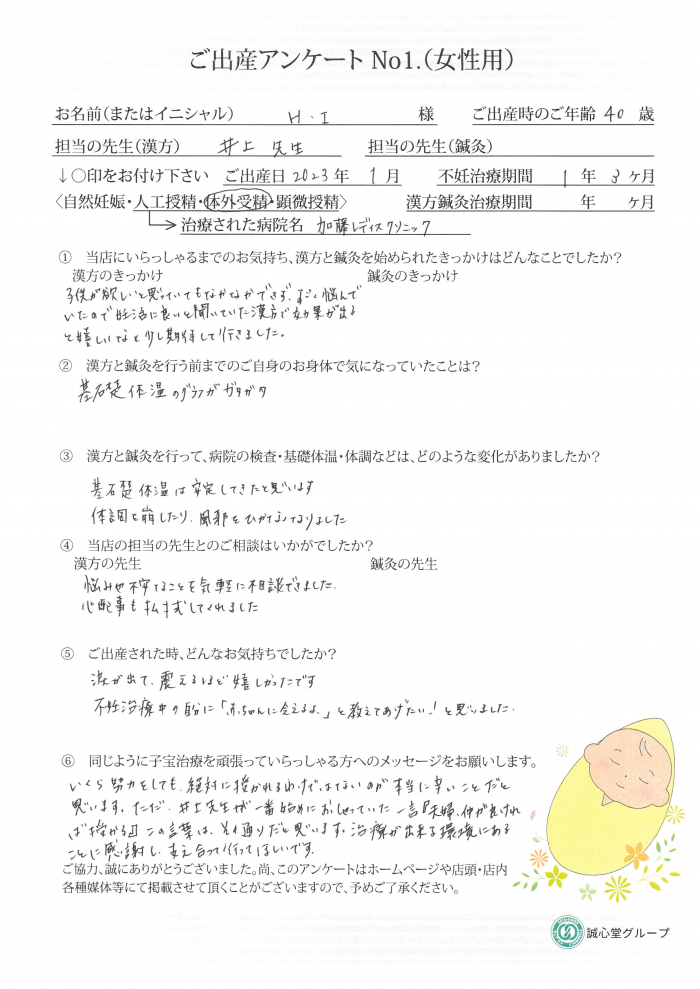 ご出産アンケート No1.(女性用)
お名前(またはイニシャル) H・I 様 ご出産時のご年齢 40 歳
担当の先生(漢方) 井上 先生 担当の先生(鍼灸)
↓○印をお付け下さい ご出産日 2023 年 1 月 不妊治療期間 1 年 3 ヶ月
〈自然妊娠・人工授精・体外受精・顕微授精〉 漢方鍼灸治療期間 年 ヶ月
→治療された病院名 加藤レディスクリニック
① 当店にいらっしゃるまでのお気持ち、漢方と鍼灸を始められたきっかけはどんなことでしたか?
漢方のきっかけ 鍼灸のきっかけ
子供が欲しいと思っていてもなかなかできず、すごく悩んで
いたので妊活に良いと聞いていた漢方で効果が出る
と嬉しいなと少し期待して行きました。
② 漢方と鍼灸を行う前までのご自身のお身体で気になっていたことは?
基礎体温のグラフがガタガタ
③ 漢方と鍼灸を行って、病院の検査・基礎体温・体調などは、どのような変化がありましたか?
基礎体温は安定してきたと思います
体調を崩したり、風邪をひかなくなりました
④ 当店の担当の先生とのご相談はいかがでしたか?
漢方の先生 鍼灸の先生
悩みや不安なことを気軽に相談できました。
心配事も払拭してくれました
⑤ ご出産された時、どんなお気持ちでしたか?
涙が出て、震えるほど嬉しかったです
不妊治療中の自分に「赤ちゃんに会えるよ。」と教えてあげたい!と思いました。
⑥ 同じように子宝治療を頑張っていらっしゃる方へのメッセージをお願いします。
いくら努力をしても、絶対に授かれるわけではないのが本当に辛いことだと
思います。ただ、井上先生が一番始めにおしゃっていた一言『夫婦、仲が良けれ
ば授かる』この言葉は、その通りだと思います。治療が出来る環境にある
ことに感謝し、支え合って行ってほしいです。
ご協力、誠にありがとうございました。尚、このアンケートはホームページや店頭・店内
各種媒体等にて掲載させて頂くことがございますので、予めご了承ください。
誠心堂グループ